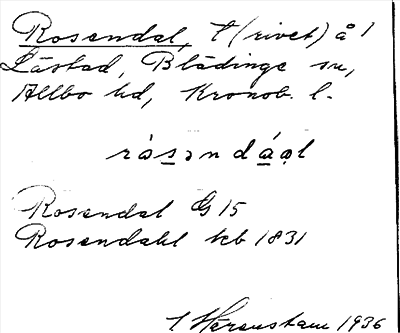 Rosendal, t (rivet) å 1
Låstad, Blädinge sn,
Allbo hd, Kronob. l.
råsəndáal
Rosendal G 15
Rosendahl kb 1831
1936